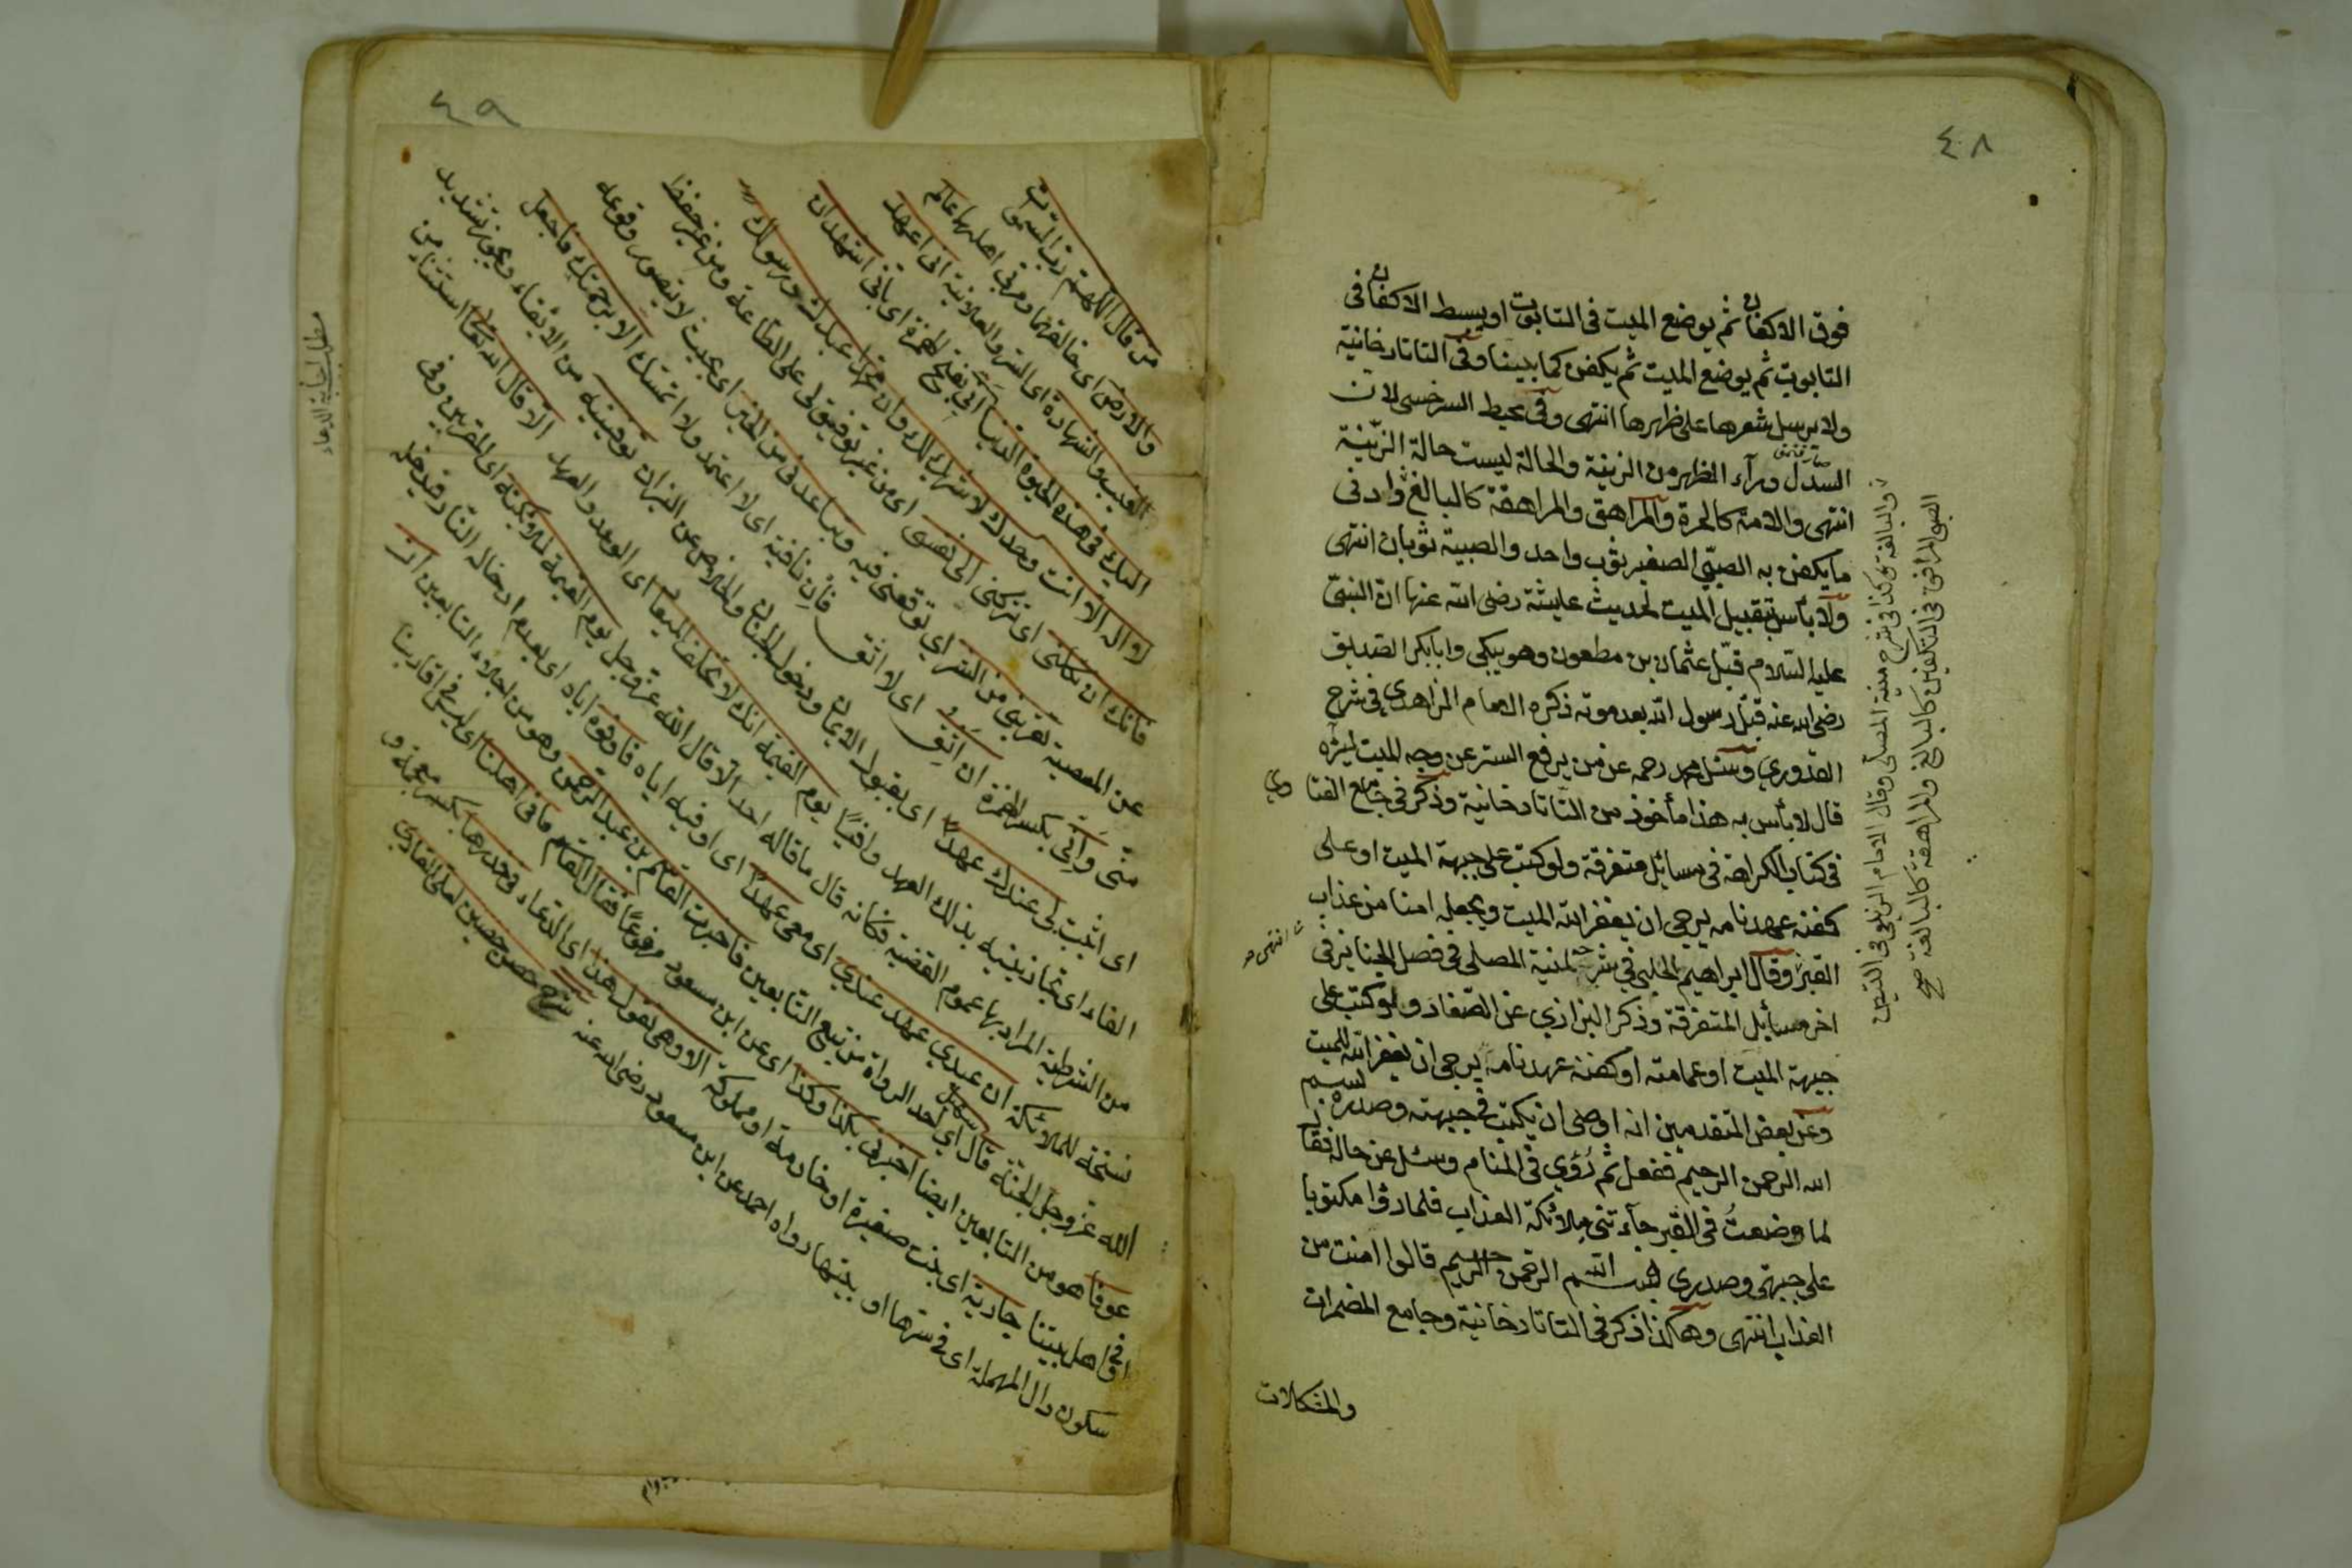 ٤٠٨
فوق الاكفان ثم يوضع الميت فى التابوت او يبسط الاكفان فى
التابوت ثم يوضع الميت ثم يكفن كما بينا وفى التاتارخانية
ولا يرسل شعرها على ظهرها انتهى وفى محيط السرخسى لان
السدل ورآء الظهر من الزينة والحالة ليست حالة الزّينة
انتهى والامة كالحرة والمراهق والمراهقة كالبالغ وادنى
ما يكفن به الصبّى الصغير ثوب واحد والصبية ثوبان انتهى
ولا بأس بتقبيل الميت لحديث عايشة رضى الله عنها انّ النبىّ
عليه السّلام قبّل عثمان بن مطعون وهو يبكى وابابكر الصديق
رضى الله عنه قبّل رسول الله بعد موته ذكره الامام الزاهدى فى شرح
القدورى وسئل محمد رحمه عن من يرفع الستر عن وجه الميت ليَرَه
قال لا بأس به هذا مأخوذ من التّاتارخانية وذكر فى جامع الفتا وى
فى كتاب الكراهة فى مسائل متفرقة ولو كتب على جبهة الميت او على
كفنه عهدنامه يرجى ان يغفر الله الميت ويجعله امنا من عذاب
القبر وقال ابراهيم الحلبى فى شرح لمنية المصلى فى فصل الجنايز فى
اخر مسايل المتفرقة وذكر البزازي عن الصّفار ولو كتب على
جبهة الميت او عمامته او كفنه عهد نامه يرجى ان يغفر الله للميت
وعن بعض المتقدمين انه اوصى ان يكتب فى جبهته وصدره بسم
الله الرحمن الرحيم ففعل ثم رُؤى فى المنام وسئل عن حاله فقال
لما وضعتُ فى القبر جآءتنى ملائكة العذاب فلما رأوا مكتوبا
على جبهتى وصدرى بسم الله الرحمن الرحيم قالوا امنت من
العذاب انتهى وهكذا ذكر فى التاتارخانية وجامع المضمرات
والمشكلات
كذا فى شرح منية المصلى وقال الامام الزيلعى فى التبيين
الصبى المراهق فى التكفين كالبالغ والمراهقة كالبالغة صح
٤٠٩
من قال اللّهمّ ربّ السموات
والارض اى خالقهما ومربى اهلهما عالم
الغيب والشهادة اى السّر والعلانية انى اعهد
اليك فى هذه الحيوة الدنيا انى بفتح الهمزة اى بانى اشهد ان
لا اله الا انت وحدك لا شريك لك وان محمّدا عبدك ورسولك
فانك ان تكلنى اى تتركنى الى نفسى اى من غير توفيق لى على الطّاعة ومن غير حفظ
عن المعصية تقربنى من الشر اى توقعنى فيه وتباعدنى من الخير اى بحيث لا يتصور وقوعه
منّى وانّى بكسر الهمزة ان اثق اى لا اثق فان نافية اى لا اعتمد ولا اتمسّك الا برحمتك فاجعل
اى اثبت لى عندك عهدًا اى بقبول الايمان ودخول الجنان والخلاص عن النيران توفينيه من الايفاء ويجوز تشديد
الفاء اى تجازينيه بذلك العهد وافيًا يوم القيمة انك لا تخلف الميعاد اى الوعد والعهد الّا قال الله تعا استثناء من
من الشرطية المراد بها عموم القضية فكانه قال ما قاله احد الّا قال الله عزوجل يوم القيمة لملائكته اى المقربين وفى
نسخة للملائكة ان عبدى عهد عندى اى معى عهدًا اى اوفيه اياه فاوفوه اياه اى بعدم ادخاله النّار فيدخله
الله عزّوجلّ الجنّة قال سهيل اى احد الرواة من تبع التّابعين فاخبرت القاسم بن عبد الرحمن وهو من اجلاء التابعين ان
عوفًا هو من التابعين ايضا اخبرنى بكذا وكذا اى عن ابن مسعود مرفوعًا فقال القاسم ما فى اهلنا اى ليس فى اقاربنا
او فى اهل بيتنا جارية اى بنت صغيرة او خادمة او مملوكة الا وهى تقول هذا اى الدّعاء فى خدرها بكسر معجمة و
سكون دال المهملة اى فى سترها او بيتها رواه احمد عن ابن مسعود رضى الله عنه شرح حصن حصين لعلى القارى